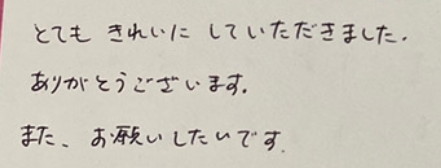 とても きれいに していただきました.
ありがとうございます.
また、お願いしたいです.